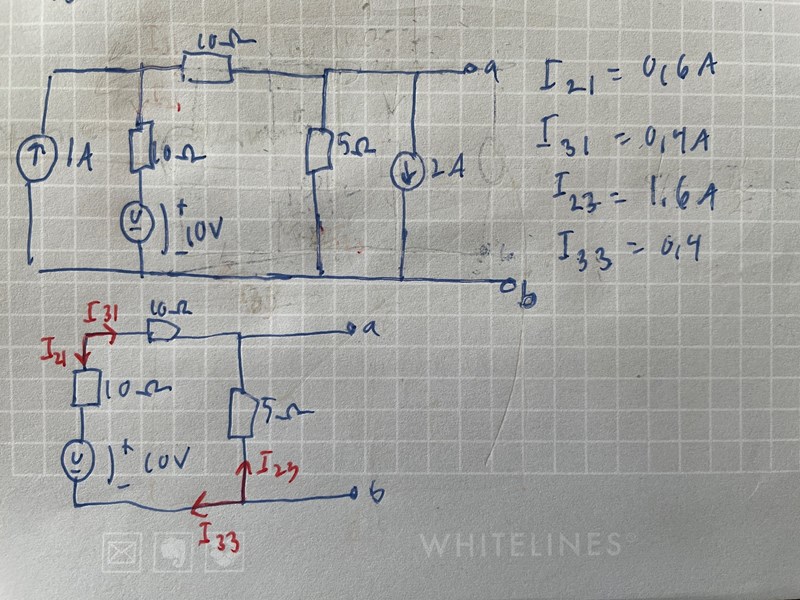 10Ω
a
1A
10Ω
5Ω
2A
+
10V
-
b
I21 = 0,6A
I31 = 0,4A
I23 = 1.6A
I33 = 0,4
I31
10Ω
a
I21
10Ω
5Ω
+
10V
-
I23
b
I33
WHITELINES